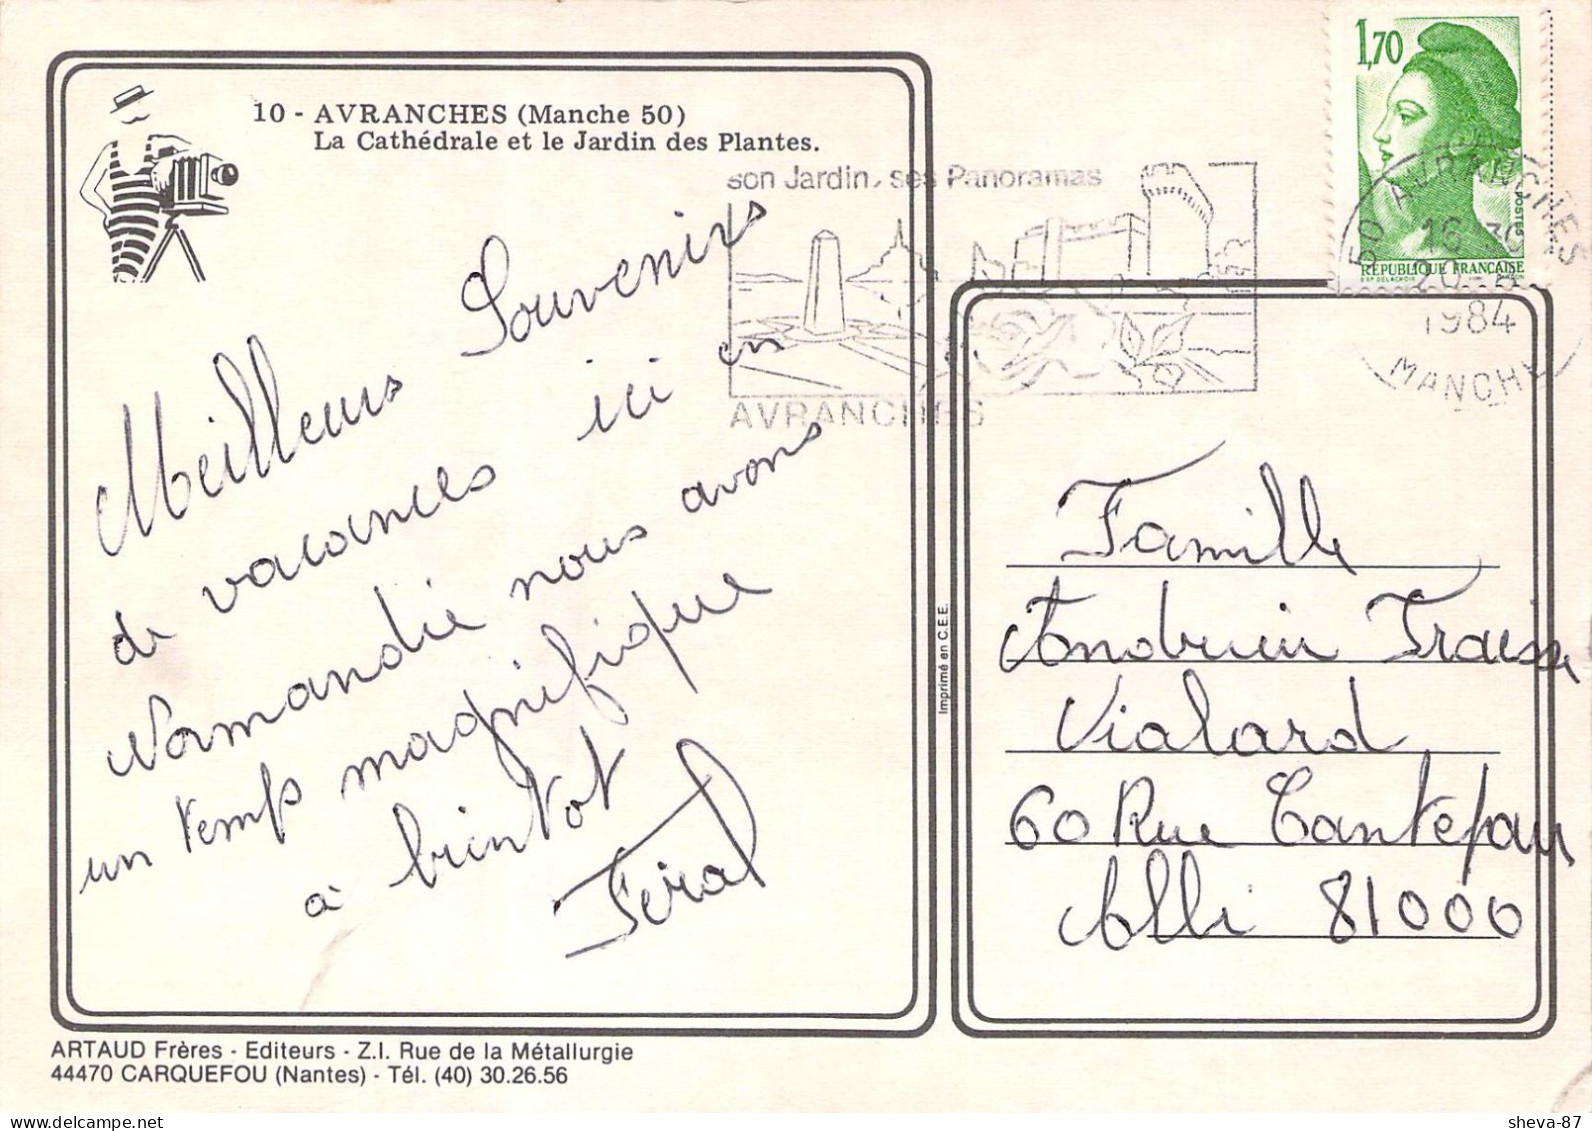 10 - AVRANCHES (Manche 50)
La Cathédrale et le Jardin des Plantes.
Meilleurs Souvenirs
de vacances ici en
Normandie nous avons
un temps magnifique
à bientot
Feral
son Jardin, ses Panoramas
AVRANCHES
1,70
POSTES
RÉPUBLIQUE FRANÇAISE
50 AVRANCHES
16 30
1984
MANCHE
Imprimé en C.E.E.
Famille
Andrieu Fraisse
Vialard
60 Rue Cantepau
Albi 81000
ARTAUD Frères - Editeurs - Z.I. Rue de la Métallurgie
44470 CARQUEFOU (Nantes) - Tél. (40) 30.26.56
sheva-87